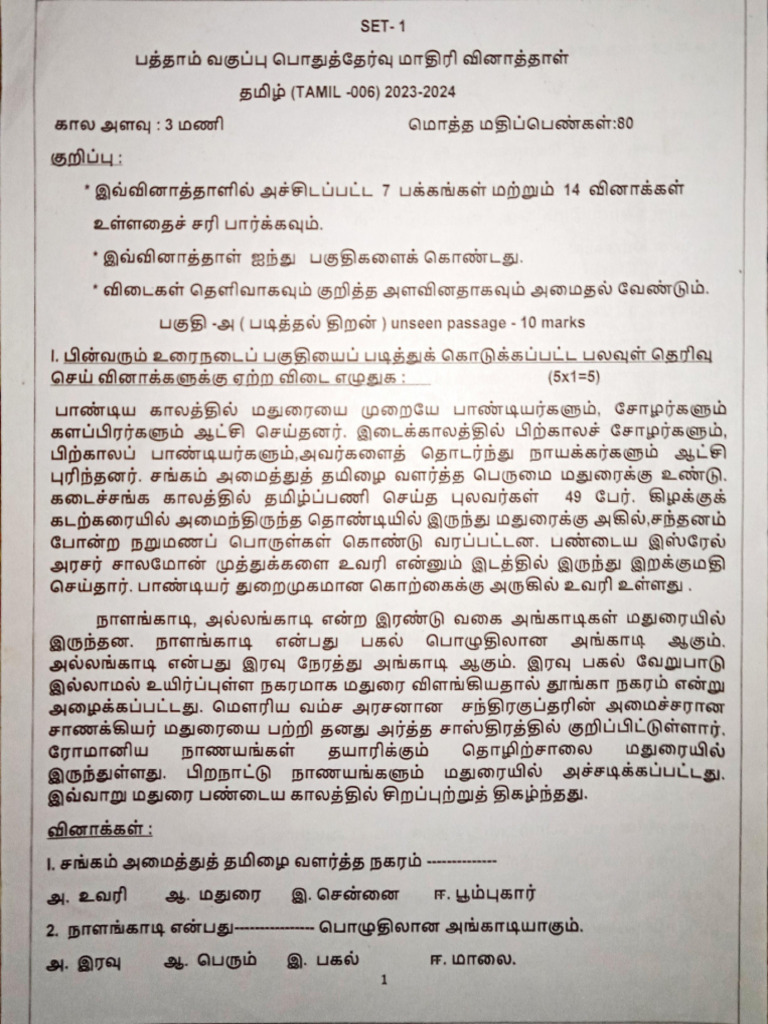 SET- 1
பத்தாம் வகுப்பு பொதுத்தேர்வு மாதிரி வினாத்தாள்
தமிழ் (TAMIL -006) 2023-2024
கால அளவு : 3 மணி மொத்த மதிப்பெண்கள்:80
குறிப்பு :
* இவ்வினாத்தாளில் அச்சிடப்பட்ட 7 பக்கங்கள் மற்றும் 14 வினாக்கள்
உள்ளதைச் சரி பார்க்கவும்.
* இவ்வினாத்தாள் ஐந்து பகுதிகளைக் கொண்டது.
* விடைகள் தெளிவாகவும் குறித்த அளவினதாகவும் அமைதல் வேண்டும்.
பகுதி -அ ( படித்தல் திறன் ) unseen passage - 10 marks
I. பின்வரும் உரைநடைப் பகுதியைப் படித்துக் கொடுக்கப்பட்ட பலவுள் தெரிவு
செய் வினாக்களுக்கு ஏற்ற விடை எழுதுக : (5x1=5)
பாண்டிய காலத்தில் மதுரையை முறையே பாண்டியர்களும், சோழர்களும்
களப்பிரர்களும் ஆட்சி செய்தனர். இடைக்காலத்தில் பிற்காலச் சோழர்களும்,
பிற்காலப் பாண்டியர்களும்,அவர்களைத் தொடர்ந்து நாயக்கர்களும் ஆட்சி
புரிந்தனர். சங்கம் அமைத்துத் தமிழை வளர்த்த பெருமை மதுரைக்கு உண்டு.
கடைச்சங்க காலத்தில் தமிழ்ப்பணி செய்த புலவர்கள் 49 பேர். கிழக்குக்
கடற்கரையில் அமைந்திருந்த தொண்டியில் இருந்து மதுரைக்கு அகில்,சந்தனம்
போன்ற நறுமணப் பொருள்கள் கொண்டு வரப்பட்டன. பண்டைய இஸ்ரேல்
அரசர் சாலமோன் முத்துக்களை உவரி என்னும் இடத்தில் இருந்து இறக்குமதி
செய்தார். பாண்டியர் துறைமுகமான கொற்கைக்கு அருகில் உவரி உள்ளது .
நாளங்காடி, அல்லங்காடி என்ற இரண்டு வகை அங்காடிகள் மதுரையில்
இருந்தன. நாளங்காடி என்பது பகல் பொழுதிலான அங்காடி ஆகும்.
அல்லங்காடி என்பது இரவு நேரத்து அங்காடி ஆகும். இரவு பகல் வேறுபாடு
இல்லாமல் உயிர்ப்புள்ள நகரமாக மதுரை விளங்கியதால் தூங்கா நகரம் என்று
அழைக்கப்பட்டது. மௌரிய வம்ச அரசனான சந்திரகுப்தரின் அமைச்சரான
சாணக்கியர் மதுரையை பற்றி தனது அர்த்த சாஸ்திரத்தில் குறிப்பிட்டுள்ளார்.
ரோமானிய நாணயங்கள் தயாரிக்கும் தொழிற்சாலை மதுரையில்
இருந்துள்ளது. பிறநாட்டு நாணயங்களும் மதுரையில் அச்சடிக்கப்பட்டது.
இவ்வாறு மதுரை பண்டைய காலத்தில் சிறப்புற்றுத் திகழ்ந்தது.
வினாக்கள் :
I. சங்கம் அமைத்துத் தமிழை வளர்த்த நகரம் -------------
அ. உவரி ஆ. மதுரை இ. சென்னை ஈ. பூம்புகார்
2. நாளங்காடி என்பது--------------- பொழுதிலான அங்காடியாகும்.
அ. இரவு ஆ. பெரும் இ. பகல் ஈ. மாலை.
1